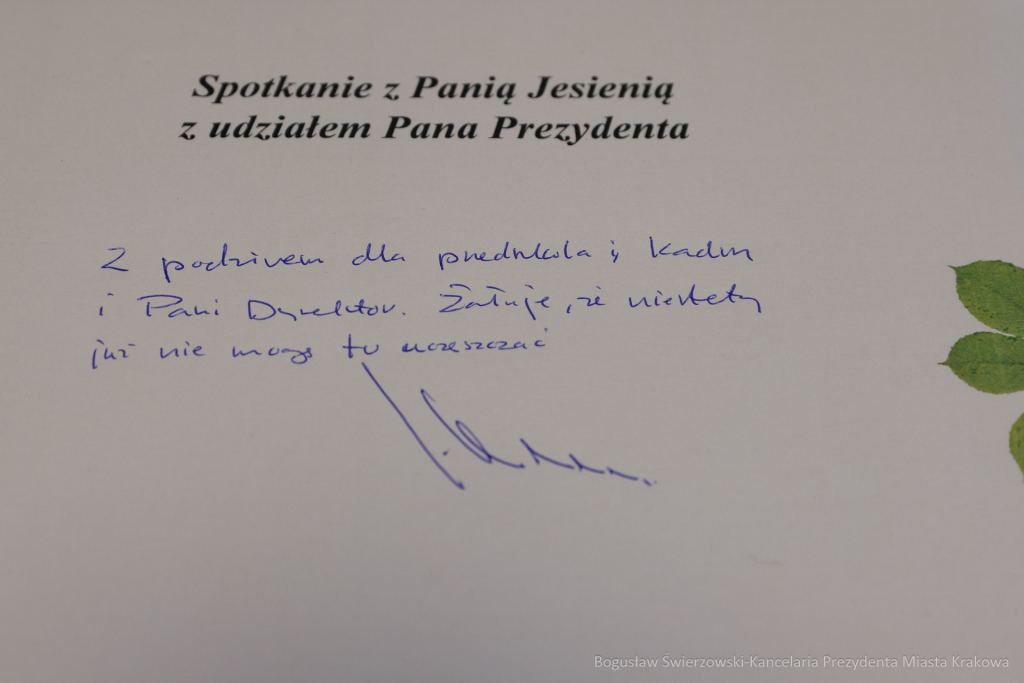 Spotkanie z Panią Jesienią
z udziałem Pana Prezydenta
Z podziwem dla przedszkola i kadry
i Pani Dyrektor. Żałuję, że niestety
już nie mogę tu uczęszczać
Bogusław Świerzowski-Kancelaria Prezydenta Miasta Krakowa